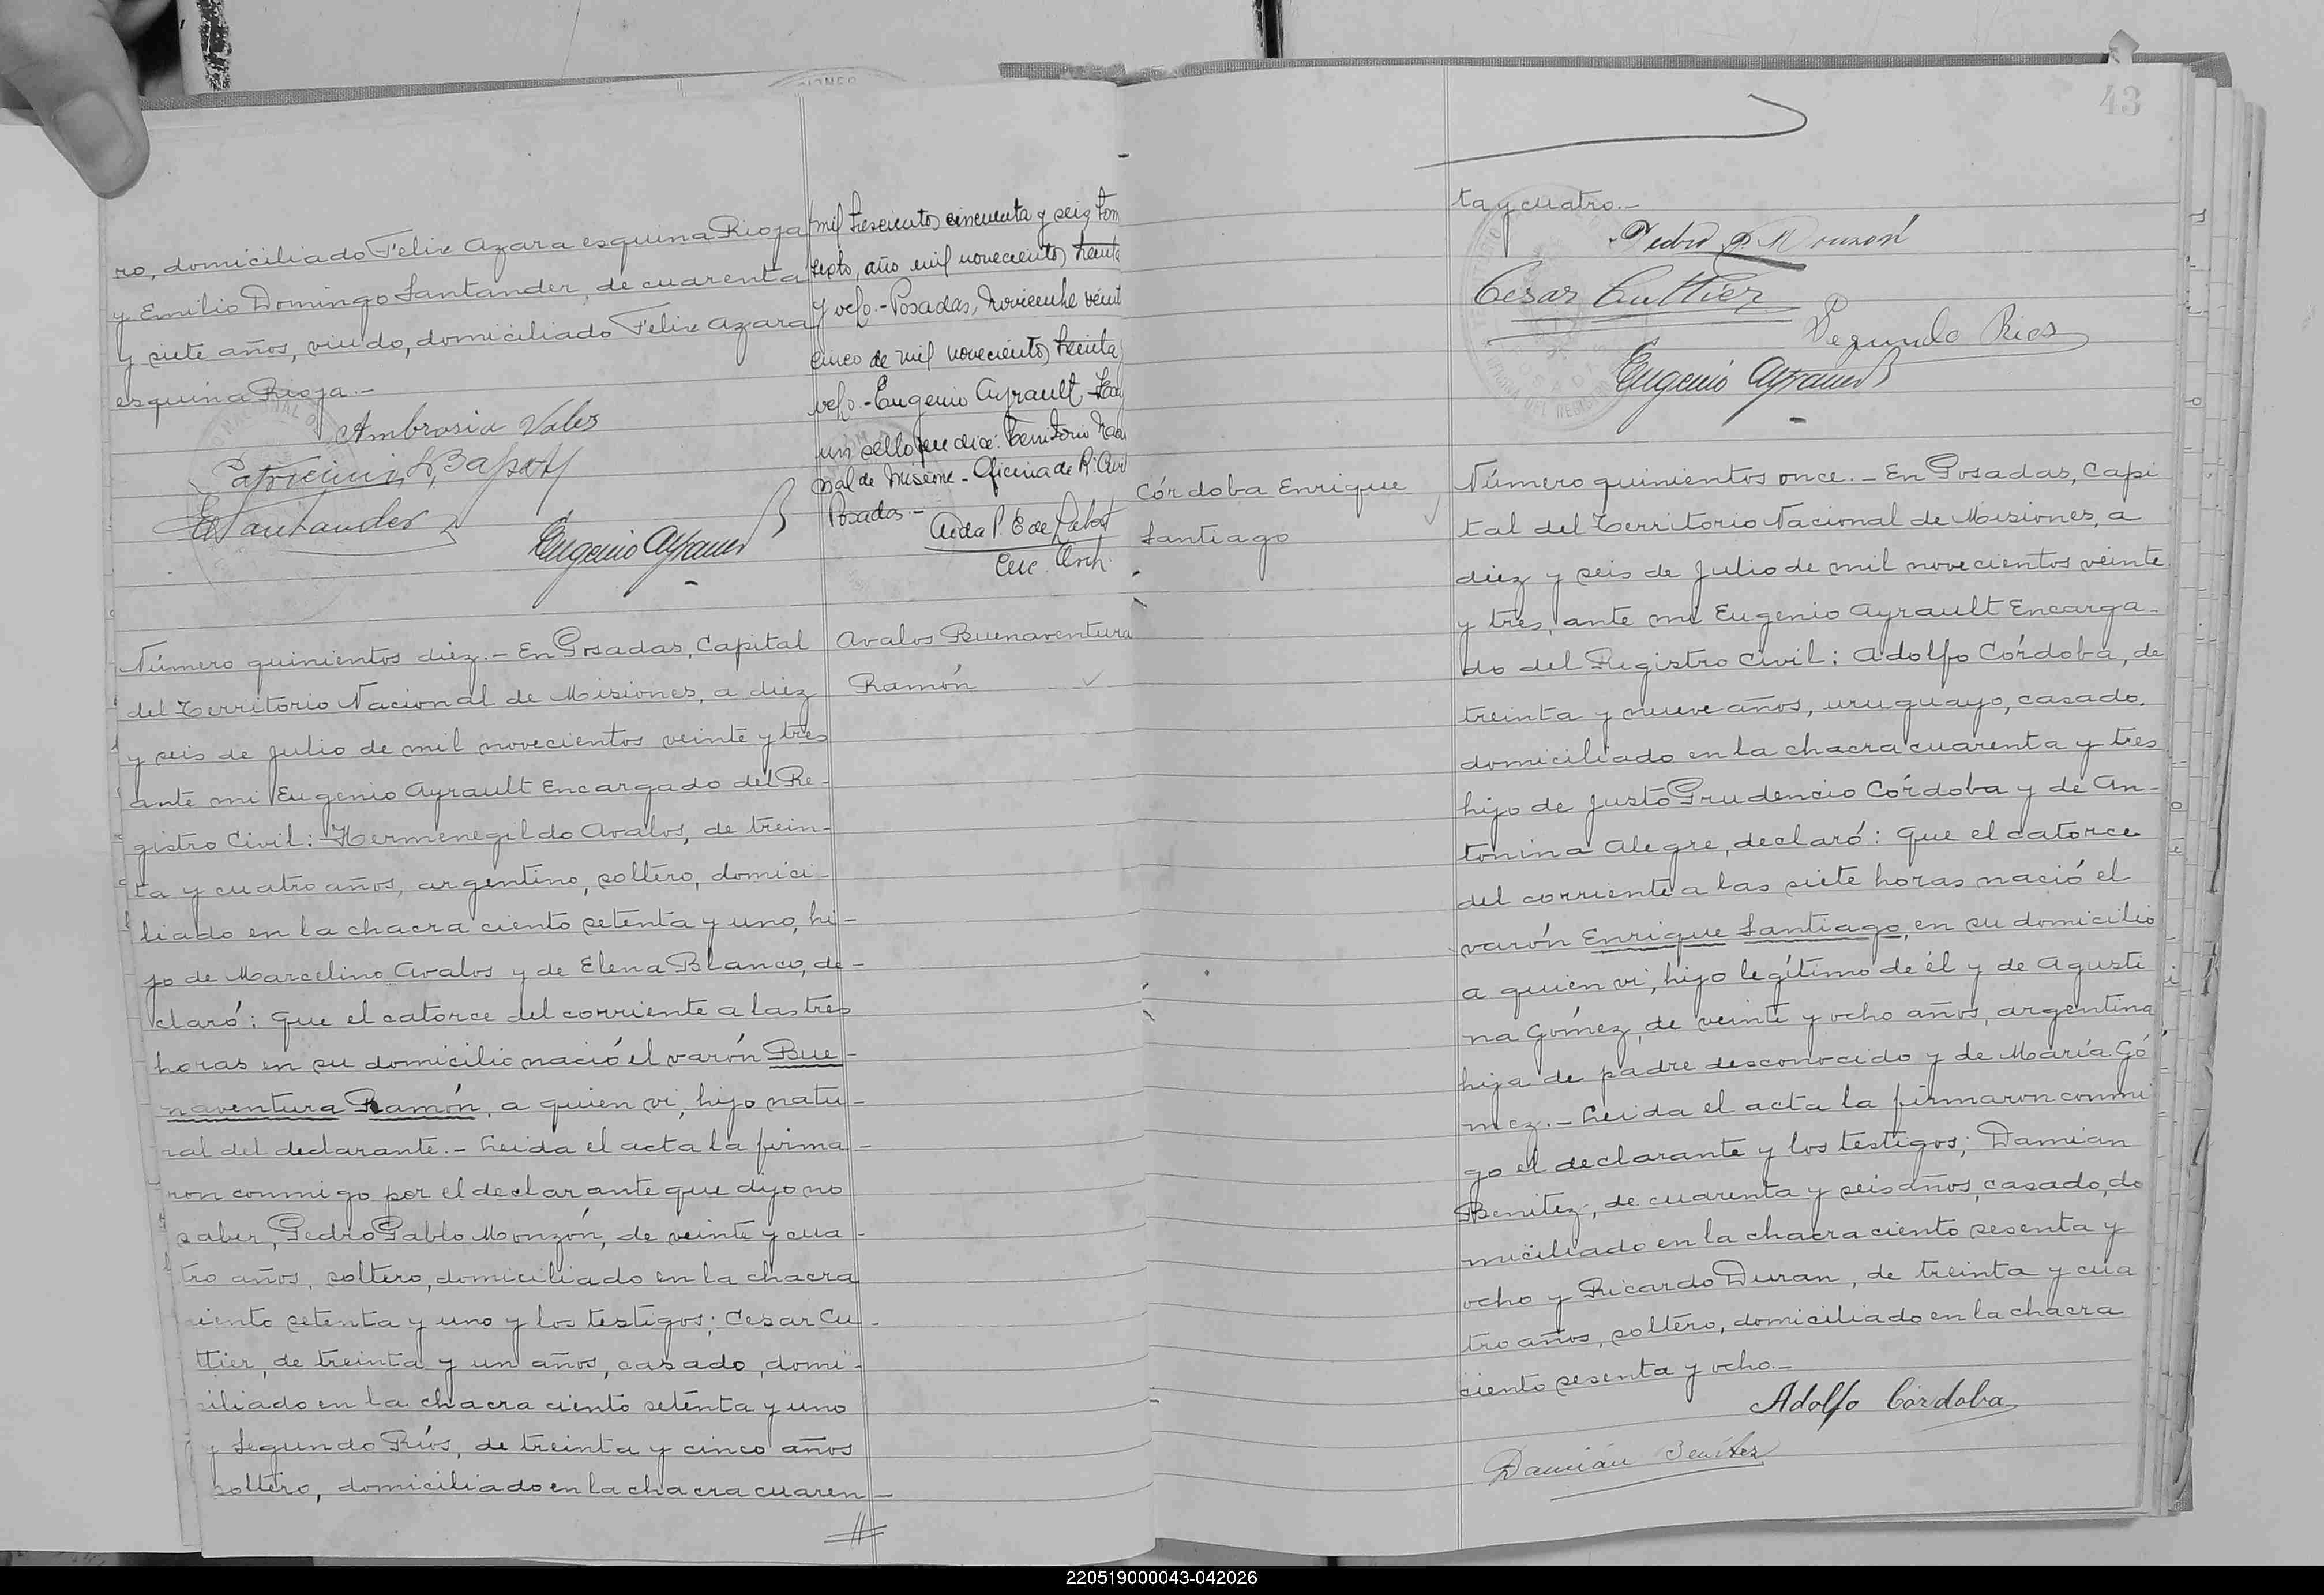 ro, domiciliado Felix Azara esquina Rioja
y Emilio Domingo Santander, de cuarenta
y siete años, viudo, domiciliado Felix Azara
esquina Rioja.-
Ambrosia Vales
E Santander
Eugenio Ayrault
mil trescientos cincuenta y seis tom
sexto, año mil novecientos treinta
y ocho.- Posadas, Noviembre veint
cinco de mil novecientos treinta y
ocho.- Eugenio Ayrault - Hay
un sello que dice: Territorio Naci
nal de Misione - Oficina de R. Civil
Posadas -
Aida P. E de
Enc. Arch.
Número quinientos diez.- En Posadas, Capital
del Territorio Nacional de Misiones, a diez
y seis de Julio de mil novecientos veinte y tres
ante mi Eugenio Ayrault Encargado del Re-
gistro Civil: Hermenegildo Avalos, de trein-
ta y cuatro años, argentino, soltero, domici-
liado en la chacra ciento setenta y uno, hi-
jo de Marcelino Avalos y de Elena Blanco, de-
claró: Que el catorce del corriente a las tres
horas en su domicilio nació el varón Bue-
naventura Ramón, a quien vi, hijo natu-
ral del declarante.- Leida el acta la firma-
ron conmigo por el declarante que dijo no
saber, Pedro Pablo Monzón, de veinte y cua-
tro años, soltero, domiciliado en la chacra
ciento setenta y uno y los testigos: Cesar Cu-
ttier, de treinta y un años, casado, domi-
ciliado en la chacra ciento setenta y uno
y Segundo Ríos, de treinta y cinco años
soltero, domiciliado en la chacra cuaren-
Avalos Buenaventura
Ramón
43
ta y cuatro.-
Pedro P. Monzón
Cesar Cuttier
Segundo Rios
Eugenio Ayrault
Córdoba Enrique
Santiago
Número quinientos once.- En Posadas, Capi
tal del Territorio Nacional de Misiones, a
diez y seis de Julio de mil novecientos veinte
y tres, ante mi Eugenio Ayrault Encarga-
do del Registro Civil: Adolfo Córdoba, de
treinta y nueve años, uruguayo, casado.
domiciliado en la chacra cuarenta y tres
hijo de Justo Prudencio Córdoba y de An-
tonina Alegre, declaró: Que el catorce
del corriente a las siete horas nació el
varón Enrique Santiago, en su domicilio
a quien vi, hijo legítimo de él y de Agusti
na Gómez, de veinte y ocho años, argentina
hija de padre desconocido y de María Gó
mez.- Leida el acta la firmaron conmi
go el declarante y los testigos; Damian
Benitez, de cuarenta y seis años, casado, do
miciliado en la chacra ciento sesenta y
ocho y Ricardo Duran, de treinta y cua
tro años, soltero, domiciliado en la chacra
ciento sesenta y ocho.-
Adolfo Córdoba
Damián Benítez
220519000043-042026